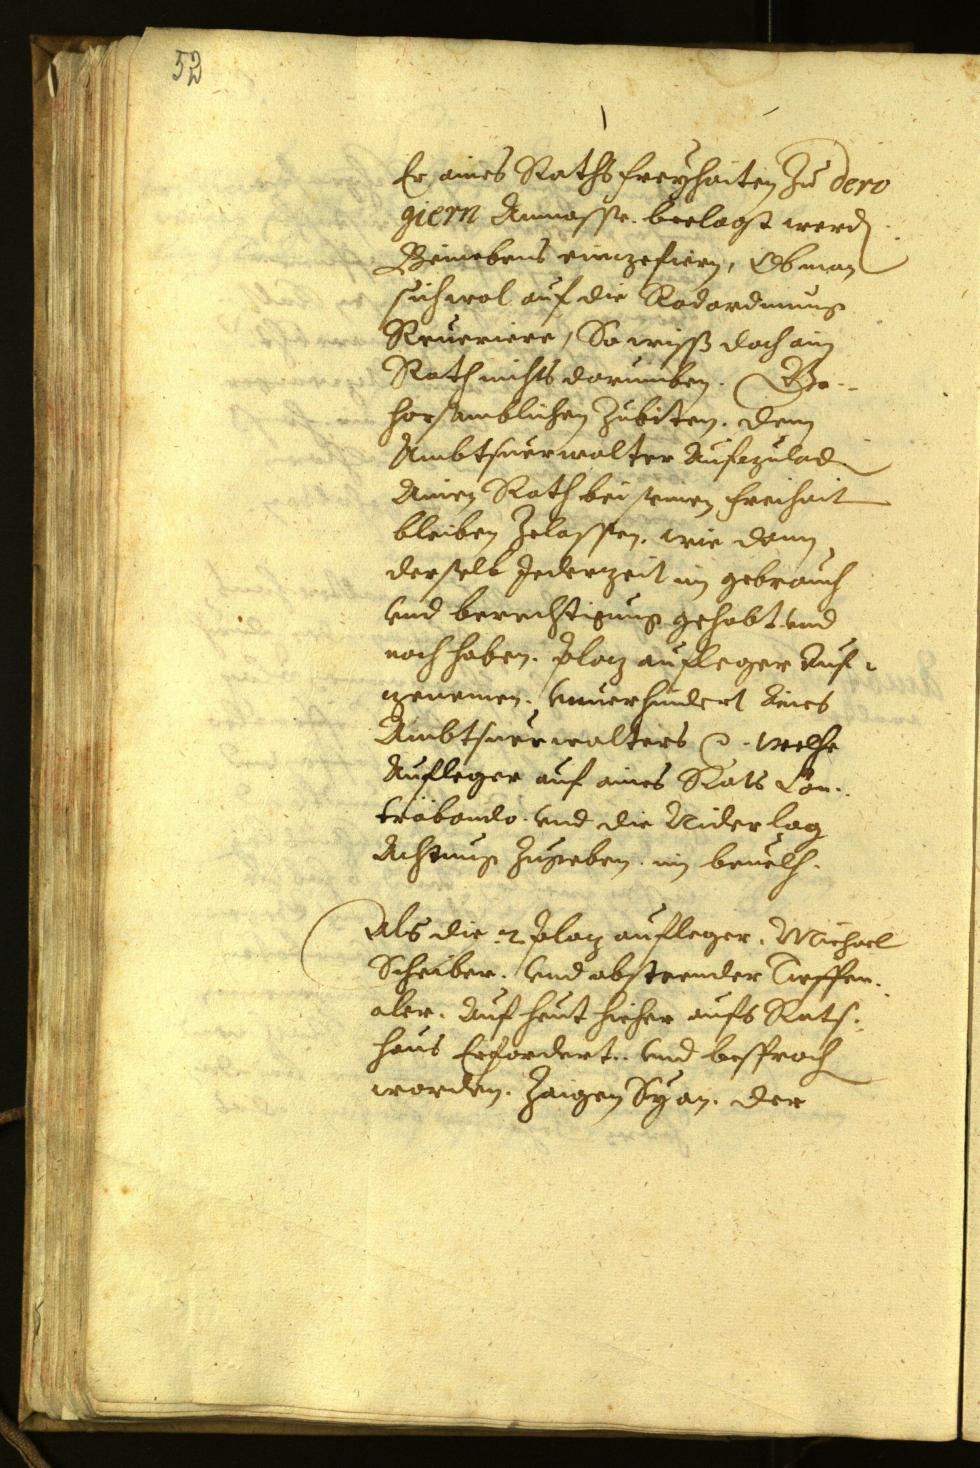 52
Er, aines Raths freyhaiten zu dero
giern Anmasse. beclagt werd
Beinebens einzefiern, Ob man
sich wol auf die Rodordnung
Reueriere, So wiss doch ain
Rath nichts darumben. Ge-
horsamblichen zubiten. dem
Ambtsuerwalter Aufzulad
Ainen Rath bei seinen freihait
bleiben zelassen. wie dann
derselb Jederzeit im gebrauch
vnd berechtigung gehabt vnd
noch haben. plaz aufleger Auf-
zenemen. vnuerhindert Aines
Ambtsuerwalters welche
Aufleger auf aines Rats Con-
trabando. vnd die Niderlag
Achtung zugeben. im beuelch.
Als die 2 plaz aufleger. Michael
Scheiber. vnd abstender
aler. Auf heut hieher aufs Rats-
haus Erfordert.. vnd besprach
worden. zaigen Sy an. der